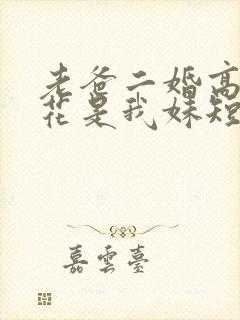 老爸二婚高
花是我妹短
嘉雲臺